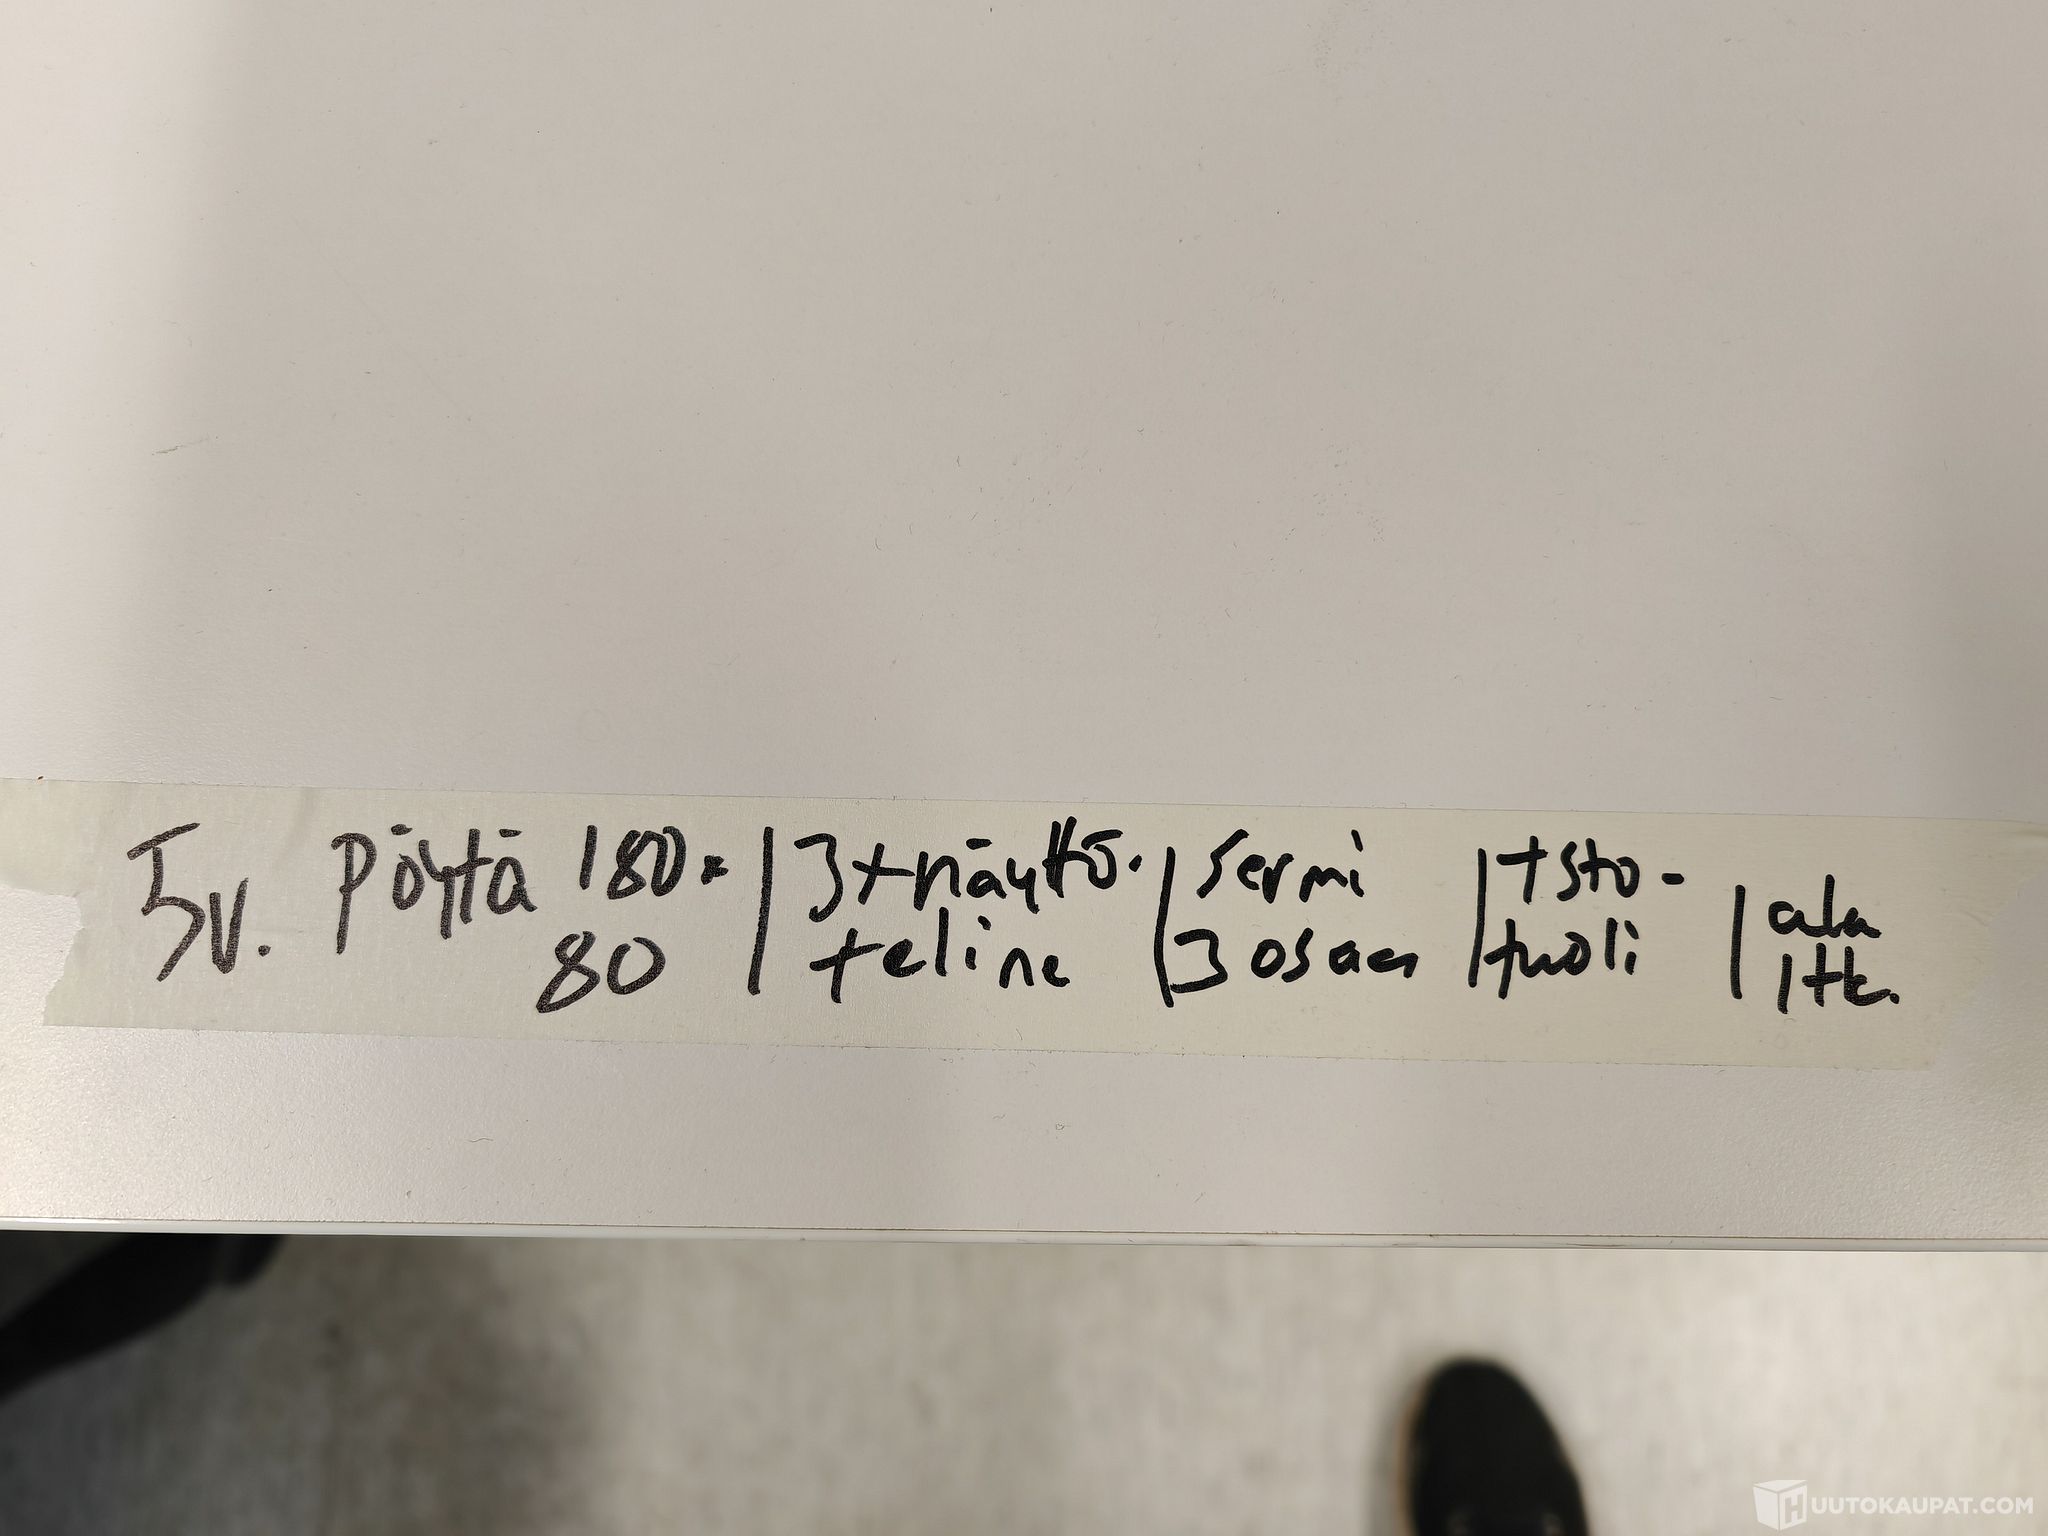 5v. pöytä 180x
80
3+näyttö.
teline
Sermi
3 osaa
tsto-
tuoli
ala
ltk.
HUUTOKAUPAT.COM